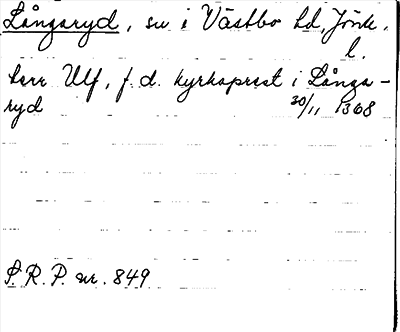 Långaryd, sn i Västbo hd, Jönk.
l.
herr Ulf, f.d. kyrkoprest i Långa-
ryd 30/11 1368
S.R.P. nr. 849